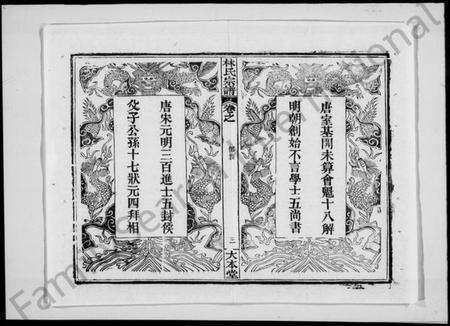 唐室基開未算會魁十八解
明朝創始不言學士五尚書
林氏宗譜
卷之
二
大本堂
唐宋元明三百進士五封侯
父子公孫十七狀元四拜相
FamilySearch International